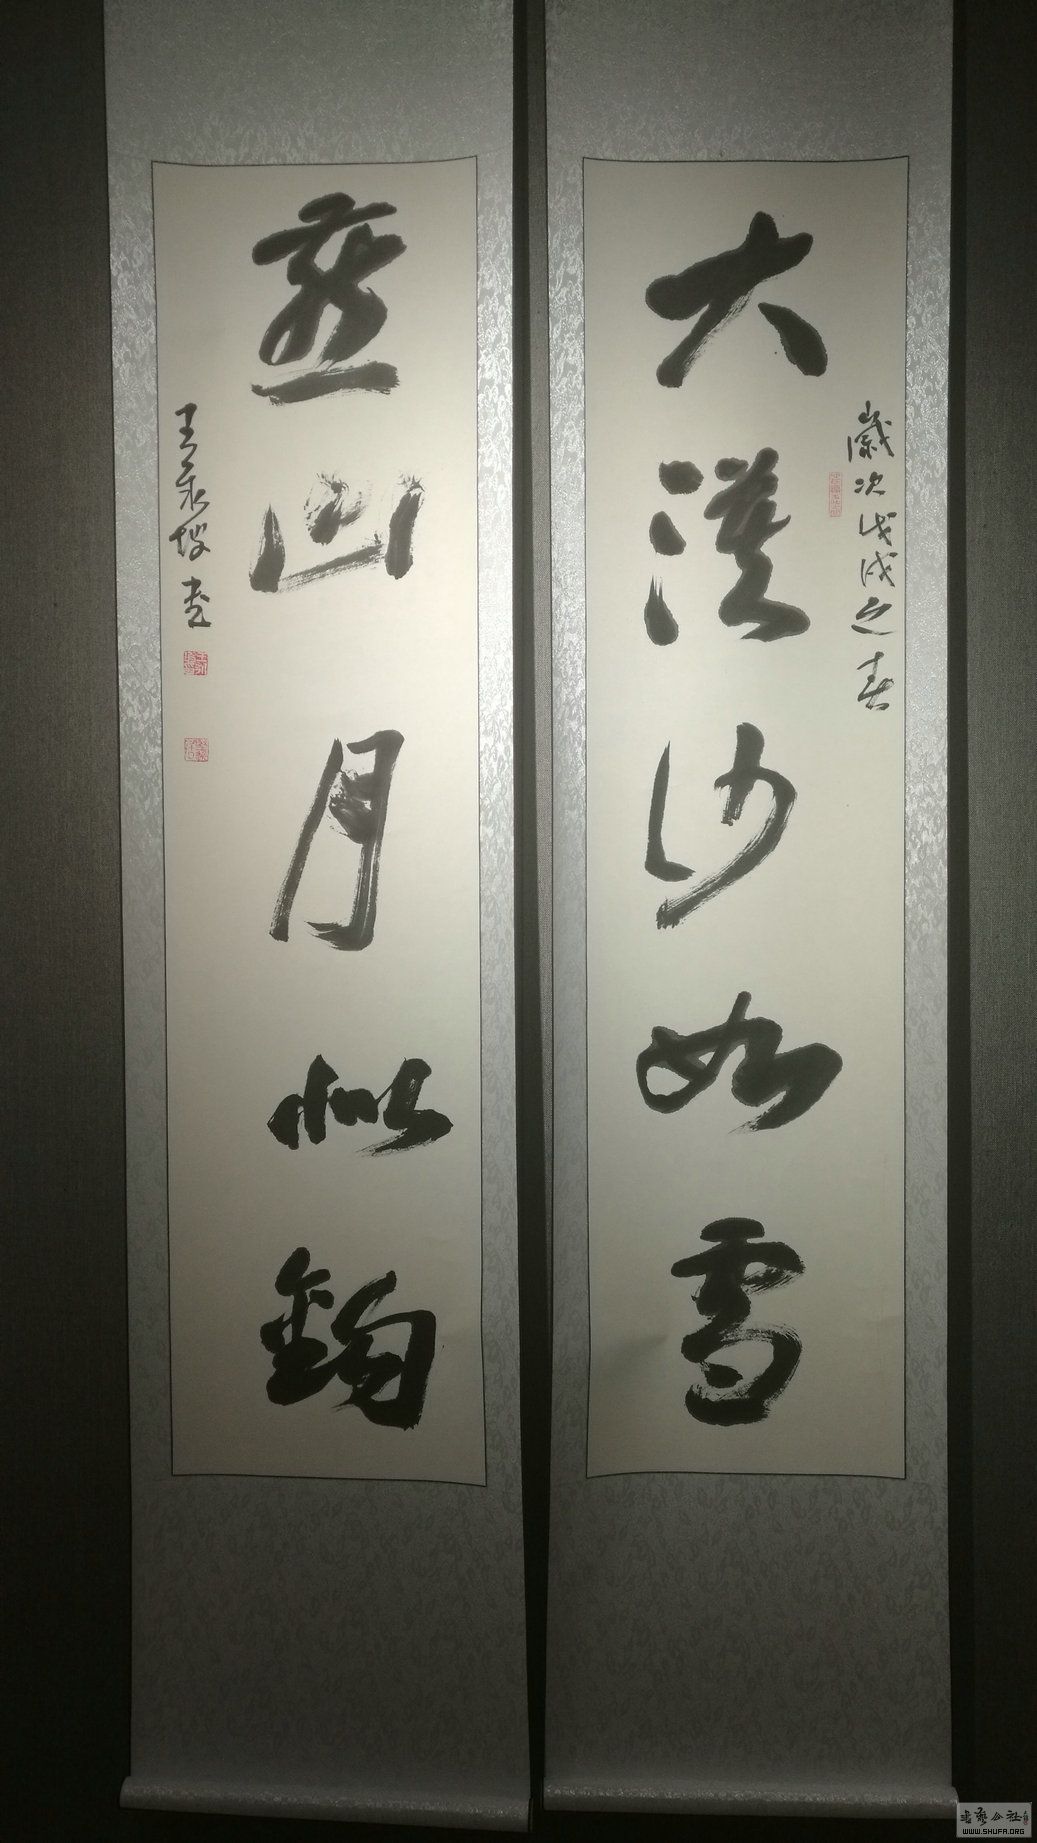 大漠沙如雪
歲次戊戌之春
燕山月似鉤
王永坡書
書藝公社
WWW.SHUFA.ORG